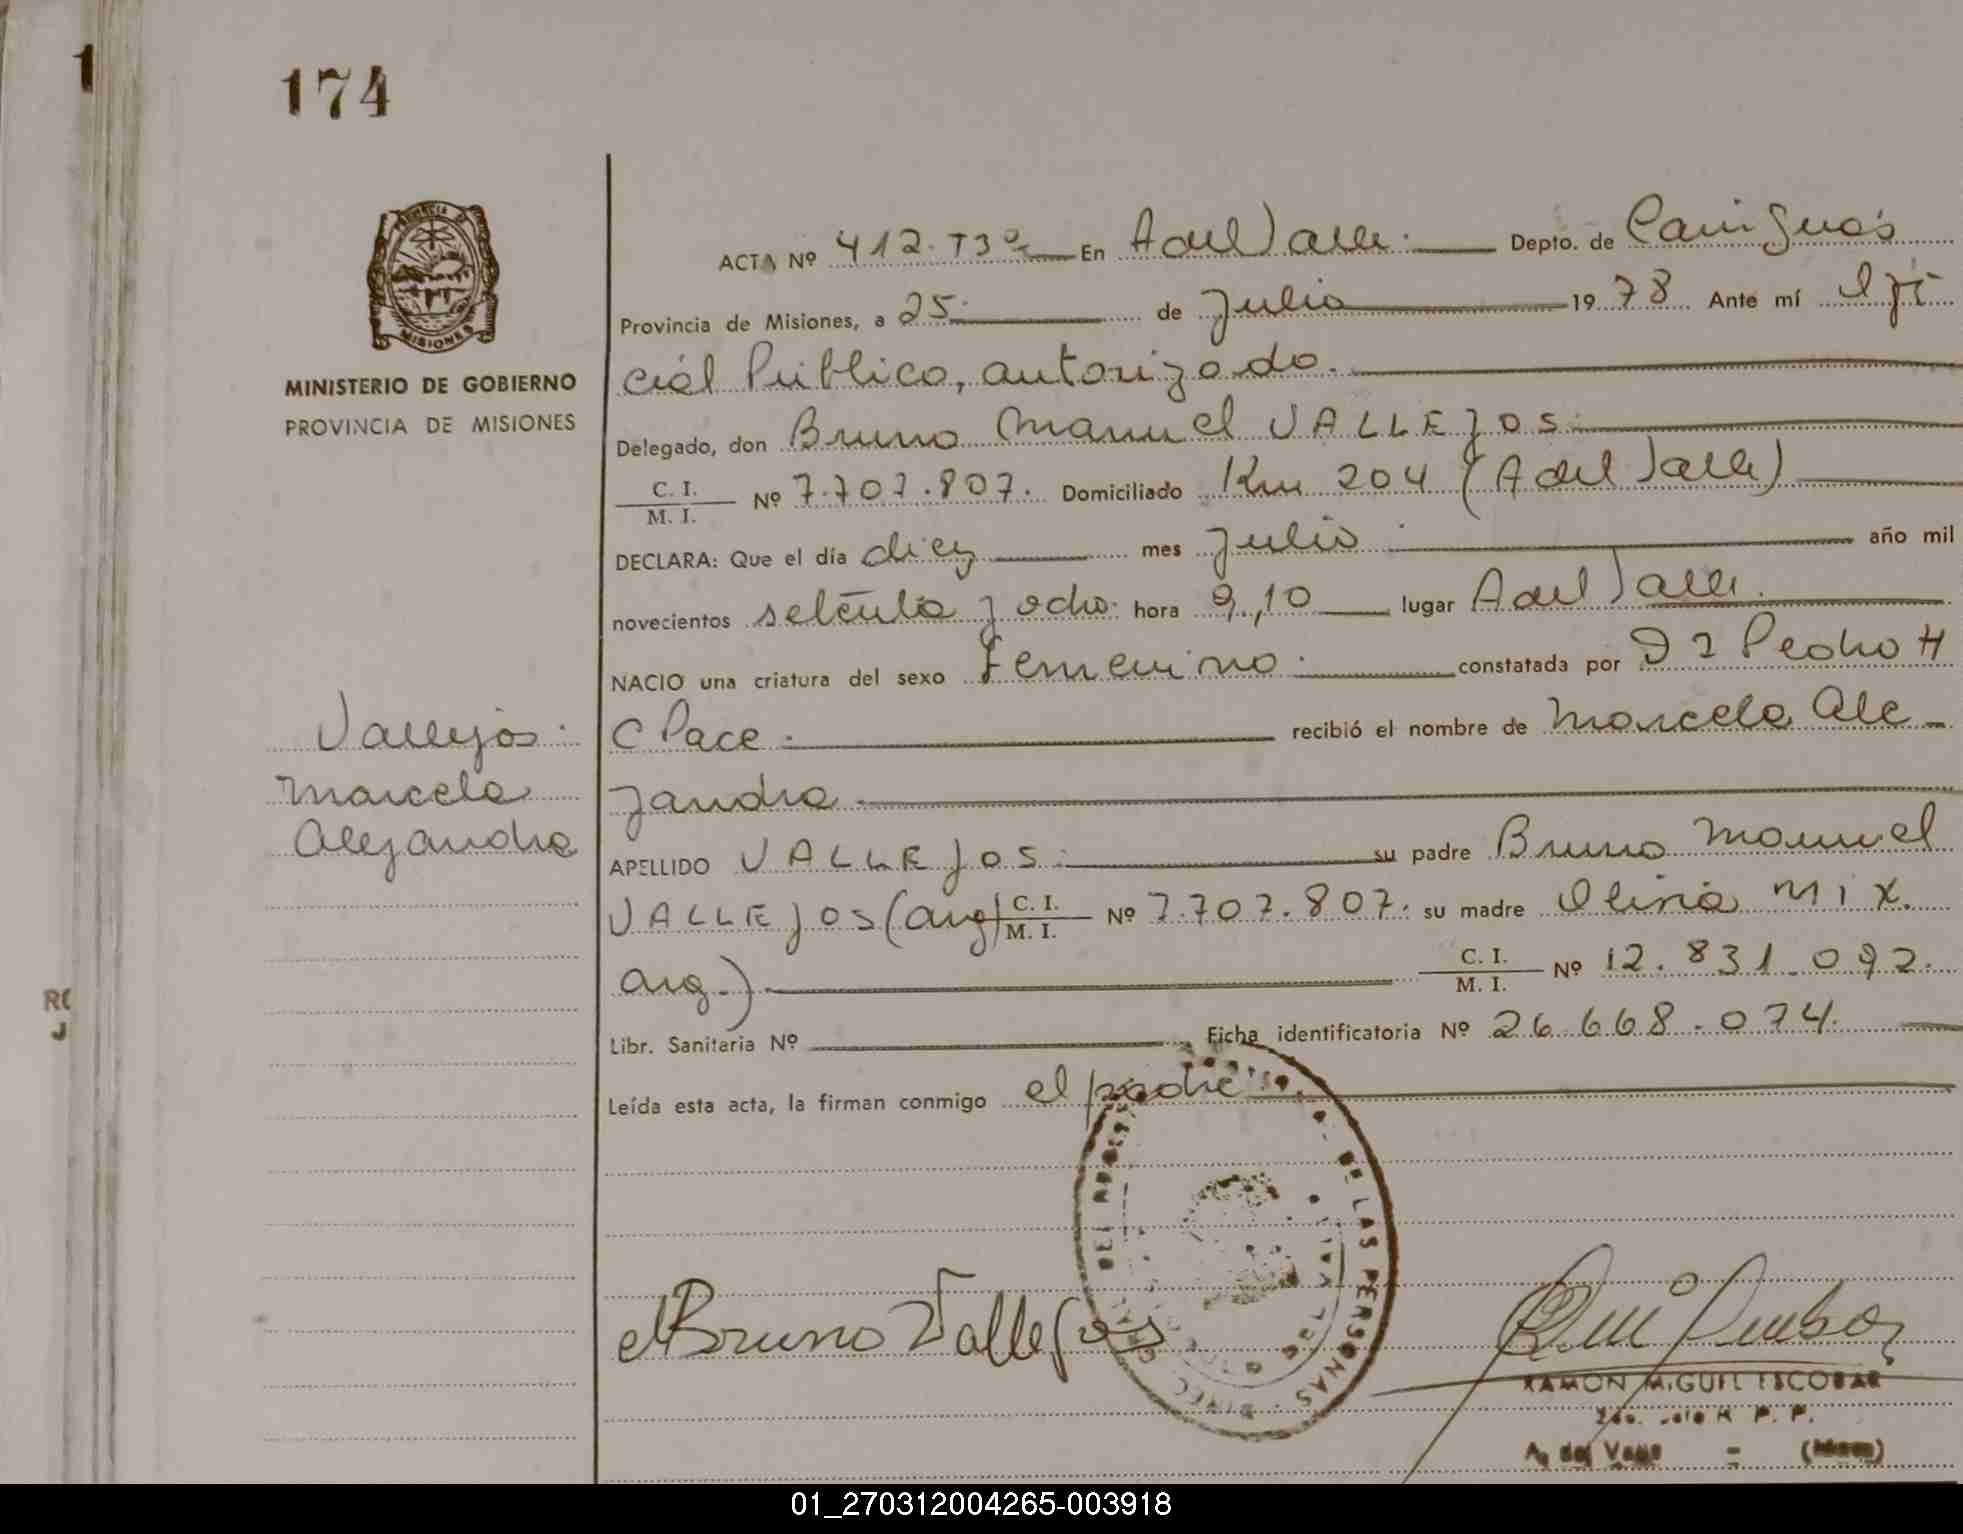 1
174
PROVINCIA DE
MISIONES
MINISTERIO DE GOBIERNO
PROVINCIA DE MISIONES
ACTA Nº 412. T3º En A del Valle. Depto. de Cainguás
Provincia de Misiones, a 25 de Julio 1978 Ante mí Ofi
cial Público, autorizado.
Delegado, don Bruno Manuel VALLEJOS
C. I.
M. I. Nº 7.707.807. Domiciliado Km 204 (A del Valle)
DECLARA: Que el día diez mes Julio año mil
novecientos setenta y ocho hora 9,10 lugar A del Valle.
NACIO una criatura del sexo Femenino constatada por Dr Pedro H
C Pace recibió el nombre de Marcela Ale-
jandra
Vallejos
Marcela
Alejandra
APELLIDO VALLEJOS su padre Bruno Manuel
VALLEJOS (arg) C. I. M. I. Nº 7.707.807. su madre Olinia MIX.
arg.) C. I. M. I. Nº 12.831.092.
Libr. Sanitaria Nº Ficha identificatoria Nº 26.668.074.
Leída esta acta, la firman conmigo el padre
RO
J
DE LAS PERSONAS
Bruno Vallejos
RAMON MIGUEL ESCOBAR
R. P. P.
A. del Valle - (Mnes)
01_270312004265-003918